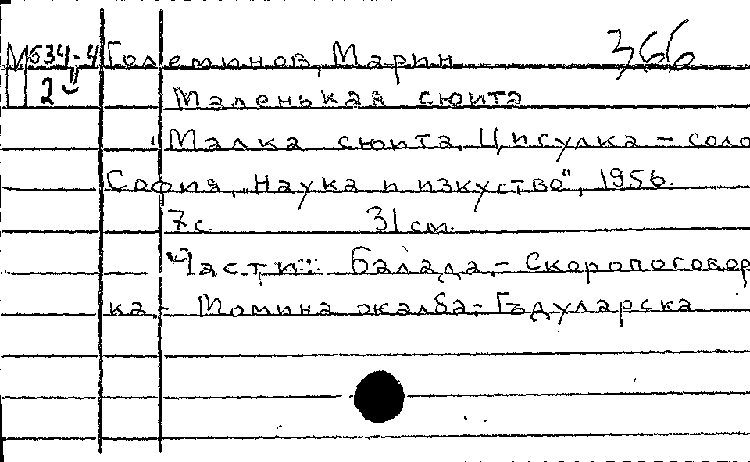 М634-4 Големинов, Марин 366
2
Маленькая сюита
Малка сюита. Цигулка - соло
София, „Наука и изкуство“, 1956.
7 с. 31 см.
Части: Балада.- Скоропоговор
ка.- Момина жалба.- Гъдуларска